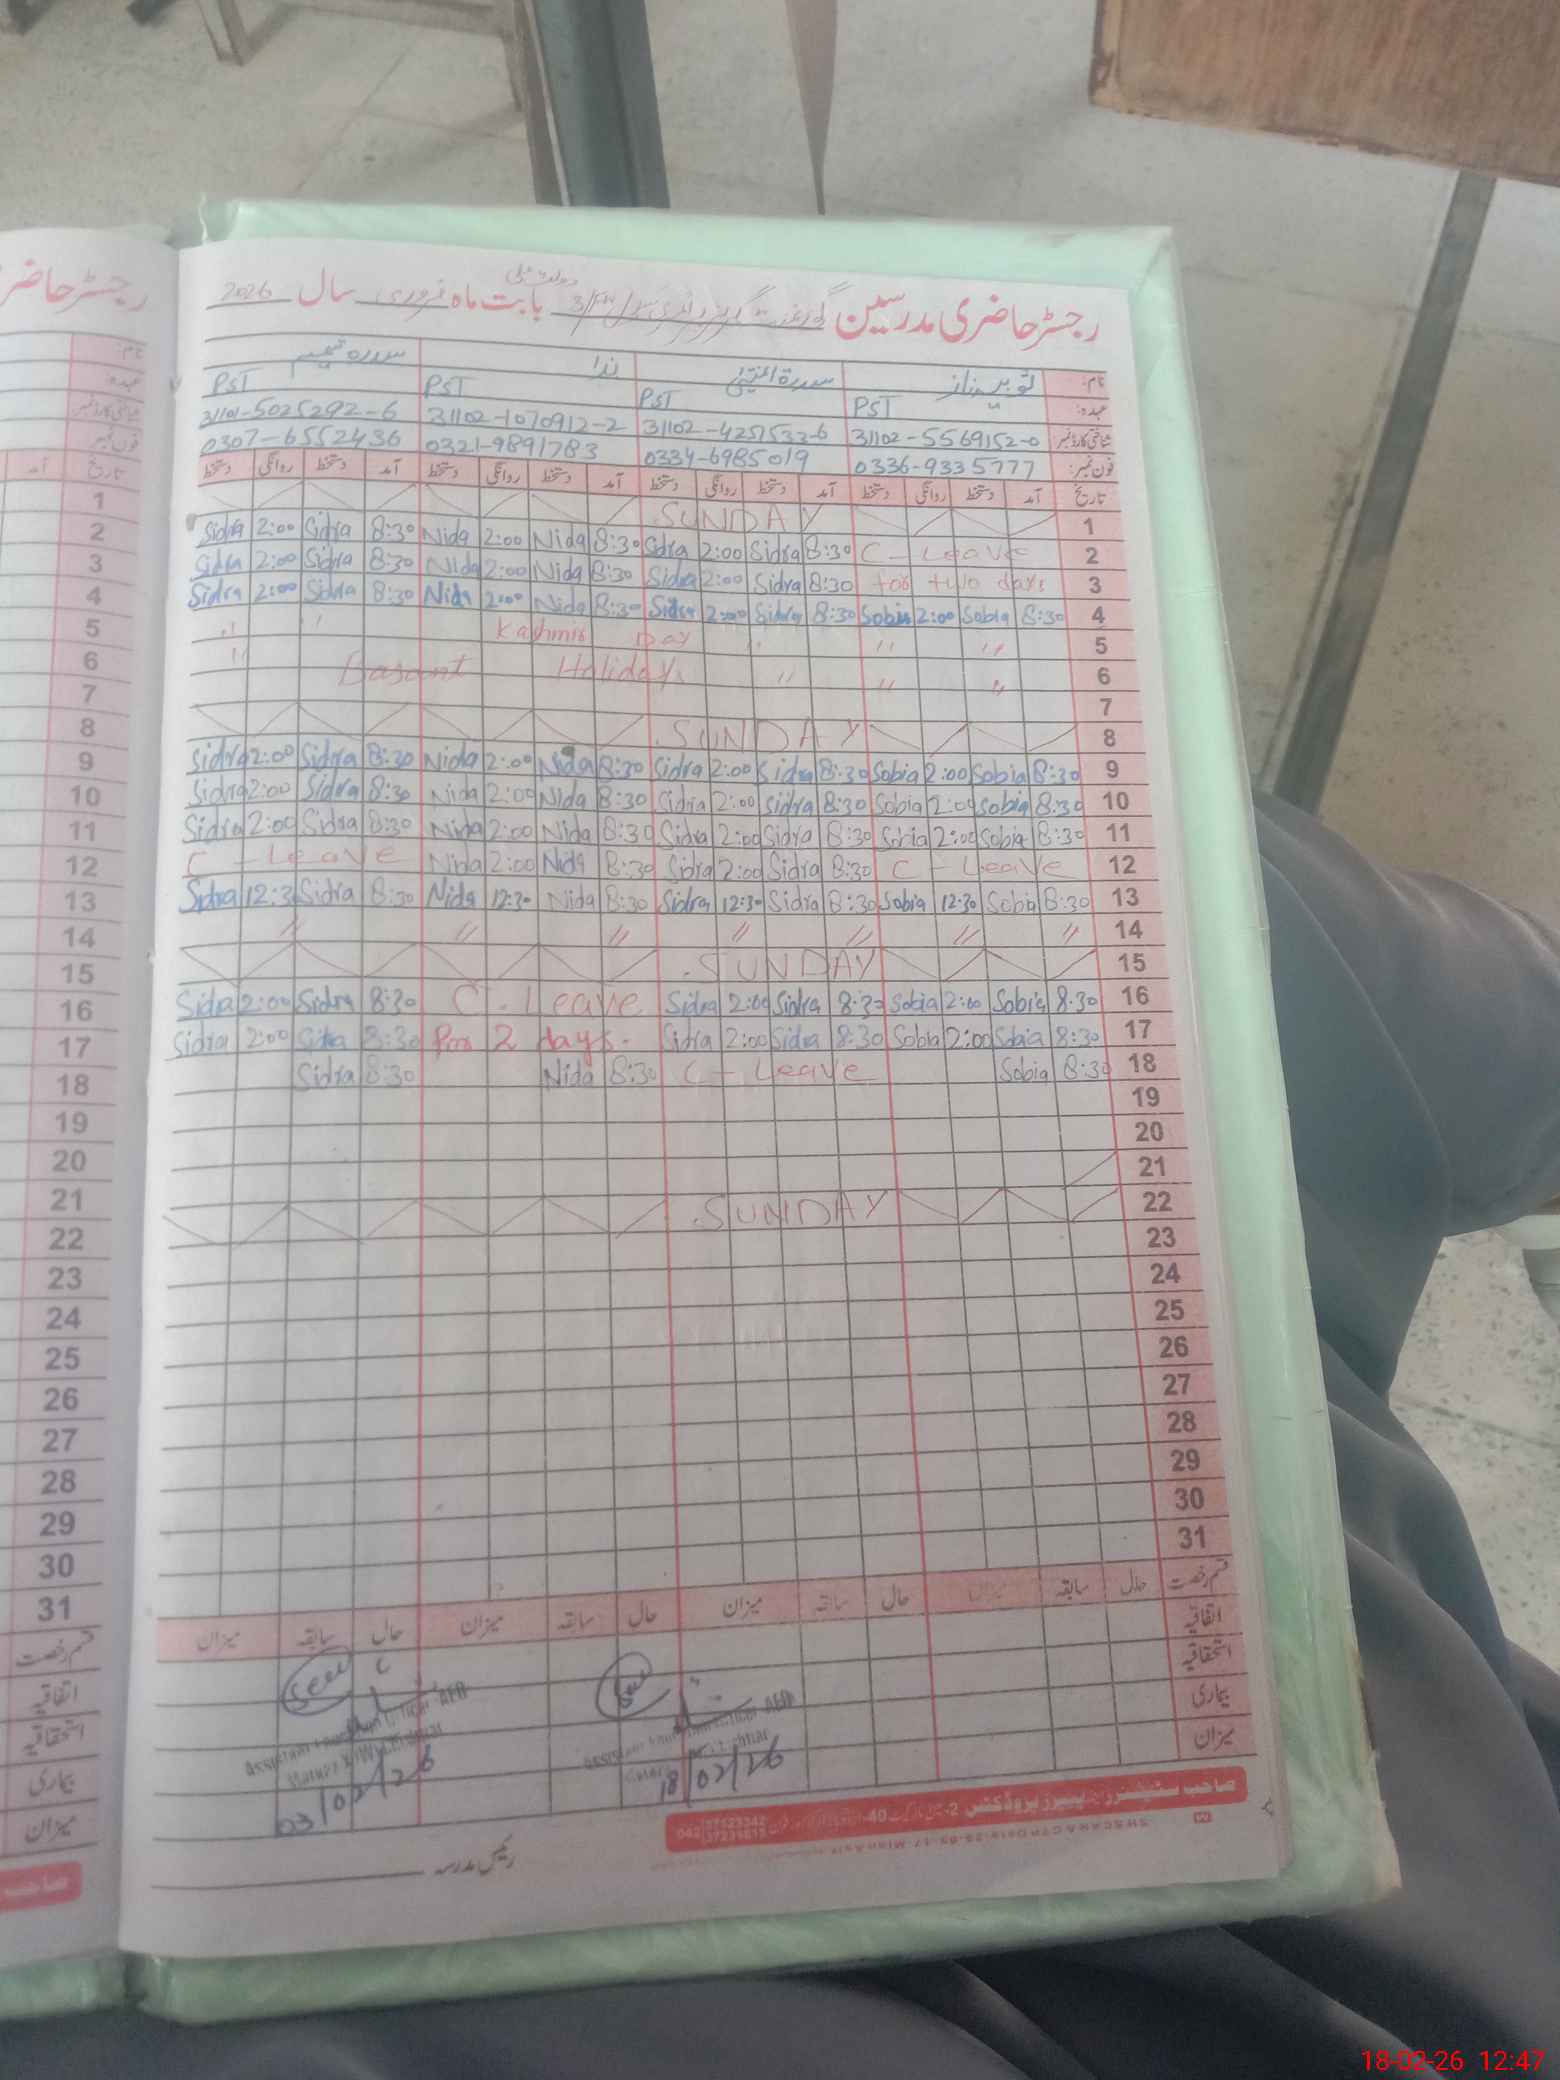 رجسٹر حاضری مدرسین گورنمنٹ گرلز بابت ماہ فروری سال 2026
نام:
عہدہ: PST PST PST PST
شناختی کارڈ نمبر 31102-5569152-0 31102-4251533-6 31102-1070912-2 31101-5025292-6
فون نمبر: 0336-9335777 0334-6985019 0321-9891783 0307-6552436
تاریخ آمد دستخط روانگی دستخط آمد دستخط روانگی دستخط آمد دستخط روانگی دستخط آمد دستخط روانگی دستخط
1 SUNDAY
Sidra 2:00 Sidra 8:30 Nida 2:00 Nida 8:30 Sidra 2:00 Sidra 8:30 C-Leave 2
Sidra 2:00 Sidra 8:30 Nida 2:00 Nida 8:30 Sidra 2:00 Sidra 8:30 for two days 3
Sidra 2:00 Sidra 8:30 Nida 2:00 Nida 8:30 Sidra 2:00 Sidra 8:30 Sobia 2:00 Sobia 8:30 4
" " Kashmir Day " " " 5
" Basant Holiday " " " 6
7
SUNDAY 8
Sidra 2:00 Sidra 8:30 Nida 2:00 Nida 8:30 Sidra 2:00 Sidra 8:30 Sobia 2:00 Sobia 8:30 9
Sidra 2:00 Sidra 8:30 Nida 2:00 Nida 8:30 Sidra 2:00 Sidra 8:30 Sobia 2:00 Sobia 8:30 10
Sidra 2:00 Sidra 8:30 Nida 2:00 Nida 8:30 Sidra 2:00 Sidra 8:30 Sobia 2:00 Sobia 8:30 11
C-Leave Nida 2:00 Nida 8:30 Sidra 2:00 Sidra 8:30 C-Leave 12
Sidra 12:3 Sidra 8:30 Nida 12:30 Nida 8:30 Sidra 12:30 Sidra 8:30 Sobia 12:30 Sobia 8:30 13
" " " " " " " 14
SUNDAY 15
Sidra 2:00 Sidra 8:30 C.Leave Sidra 2:00 Sidra 8:30 Sobia 2:00 Sobia 8:30 16
Sidra 2:00 Sidra 8:30 For 2 days. Sidra 2:00 Sidra 8:30 Sobia 2:00 Sobia 8:30 17
Sidra 8:30 Nida 8:30 C-Leave Sobia 8:30 18
19
20
21
SUNDAY 22
23
24
25
26
27
28
29
30
31
قسم رخصت حال سابقہ میزان حال سابقہ میزان حال سابقہ میزان حال سابقہ میزان
اتفاقیہ
استحقاقیہ
بیماری
میزان
Seen
03/02/26
Seen
18/02/26
رئیس مدرسہ
رجسٹر حاضر
نام:
عہدہ:
شناختی کارڈ نمبر
فون نمبر
تاریخ آمد
1
2
3
4
5
6
7
8
9
10
11
12
13
14
15
16
17
18
19
20
21
22
23
24
25
26
27
28
29
30
31
قسم رخصت
اتفاقیہ
استحقاقیہ
بیماری
میزان
صاحب
18-02-26 12:47